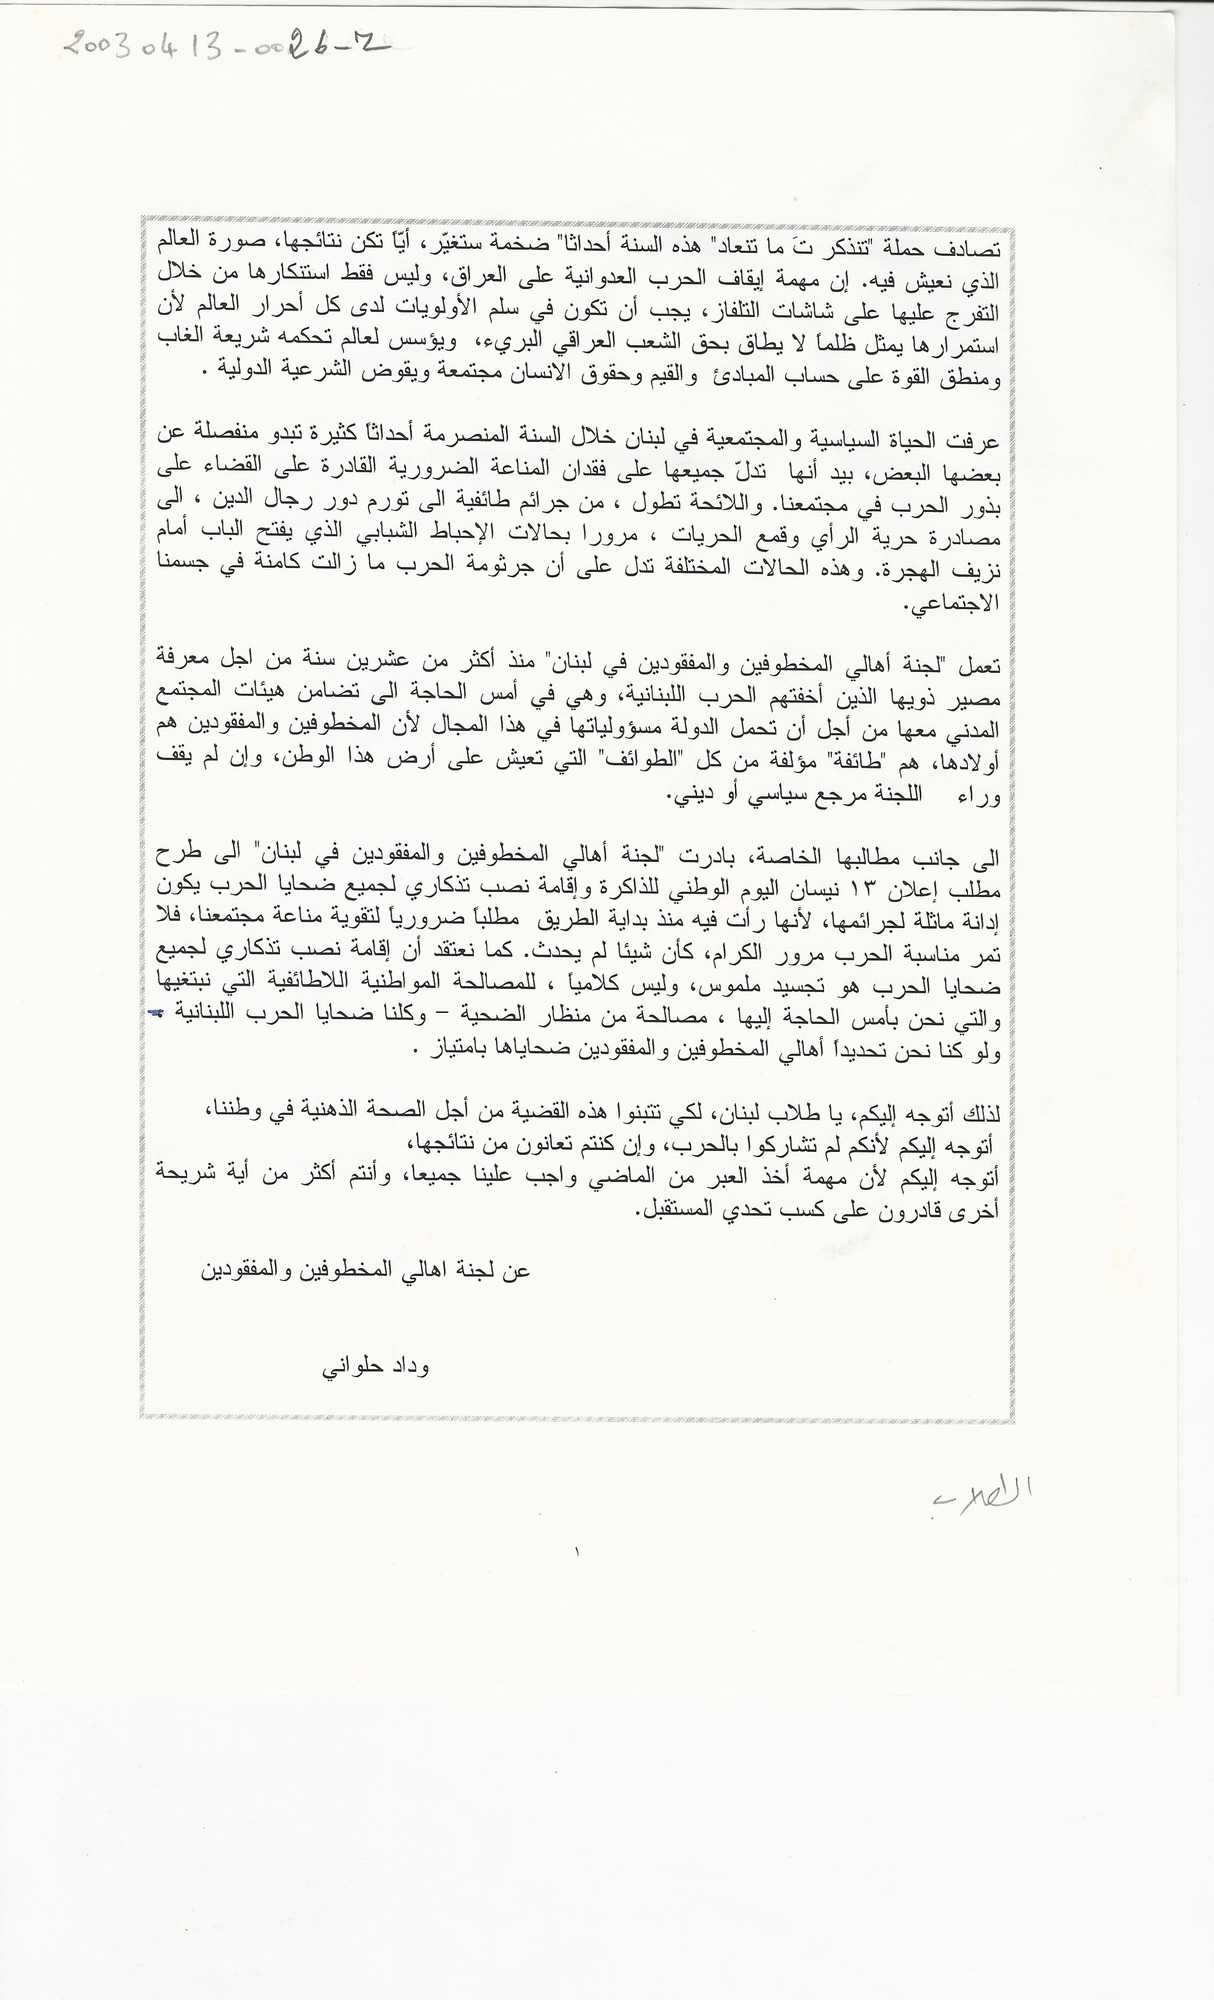 20030413-0026-2
تصادف حملة "تنذكر تَ ما تنعاد" هذه السنة أحداثا" ضخمة ستغيّر، أيّاً تكن نتائجها، صورة العالم
الذي نعيش فيه. إن مهمة إيقاف الحرب العدوانية على العراق، وليس فقط استنكارها من خلال
التفرج عليها على شاشات التلفاز، يجب أن تكون في سلم الأولويات لدى كل أحرار العالم لأن
استمرارها يمثل ظلماً لا يطاق بحق الشعب العراقي البريء، ويؤسس لعالم تحكمه شريعة الغاب
ومنطق القوة على حساب المبادئ والقيم وحقوق الانسان مجتمعة ويقوض الشرعية الدولية .
عرفت الحياة السياسية والمجتمعية في لبنان خلال السنة المنصرمة أحداثاً كثيرة تبدو منفصلة عن
بعضها البعض، بيد أنها تدلّ جميعها على فقدان المناعة الضرورية القادرة على القضاء على
بذور الحرب في مجتمعنا. واللائحة تطول ، من جرائم طائفية الى تورم دور رجال الدين ، الى
مصادرة حرية الرأي وقمع الحريات ، مرورا بحالات الإحباط الشبابي الذي يفتح الباب أمام
نزيف الهجرة. وهذه الحالات المختلفة تدل على أن جرثومة الحرب ما زالت كامنة في جسمنا
الاجتماعي.
تعمل "لجنة أهالي المخطوفين والمفقودين في لبنان" منذ أكثر من عشرين سنة من اجل معرفة
مصير ذويها الذين أخفتهم الحرب اللبنانية، وهي في أمس الحاجة الى تضامن هيئات المجتمع
المدني معها من أجل أن تحمل الدولة مسؤولياتها في هذا المجال لأن المخطوفين والمفقودين هم
أولادها، هم "طائفة" مؤلفة من كل "الطوائف" التي تعيش على أرض هذا الوطن، وإن لم يقف
وراء اللجنة مرجع سياسي أو ديني.
الى جانب مطالبها الخاصة، بادرت "لجنة أهالي المخطوفين والمفقودين في لبنان" الى طرح
مطلب إعلان ١٣ نيسان اليوم الوطني للذاكرة وإقامة نصب تذكاري لجميع ضحايا الحرب يكون
إدانة ماثلة لجرائمها، لأنها رأت فيه منذ بداية الطريق مطلباً ضرورياً لتقوية مناعة مجتمعنا، فلا
تمر مناسبة الحرب مرور الكرام، كأن شيئا لم يحدث. كما نعتقد أن إقامة نصب تذكاري لجميع
ضحايا الحرب هو تجسيد ملموس، وليس كلامياً ، للمصالحة المواطنية اللاطائفية التي نبتغيها
والتي نحن بأمس الحاجة إليها ، مصالحة من منظار الضحية – وكلنا ضحايا الحرب اللبنانية -
ولو كنا نحن تحديداً أهالي المخطوفين والمفقودين ضحاياها بامتياز .
لذلك أتوجه إليكم، يا طلاب لبنان، لكي تتبنوا هذه القضية من أجل الصحة الذهنية في وطننا،
أتوجه إليكم لأنكم لم تشاركوا بالحرب، وإن كنتم تعانون من نتائجها،
أتوجه إليكم لأن مهمة أخذ العبر من الماضي واجب علينا جميعا، وأنتم أكثر من أية شريحة
أخرى قادرون على كسب تحدي المستقبل.
عن لجنة اهالي المخطوفين والمفقودين
وداد حلواني
الطلاب
١